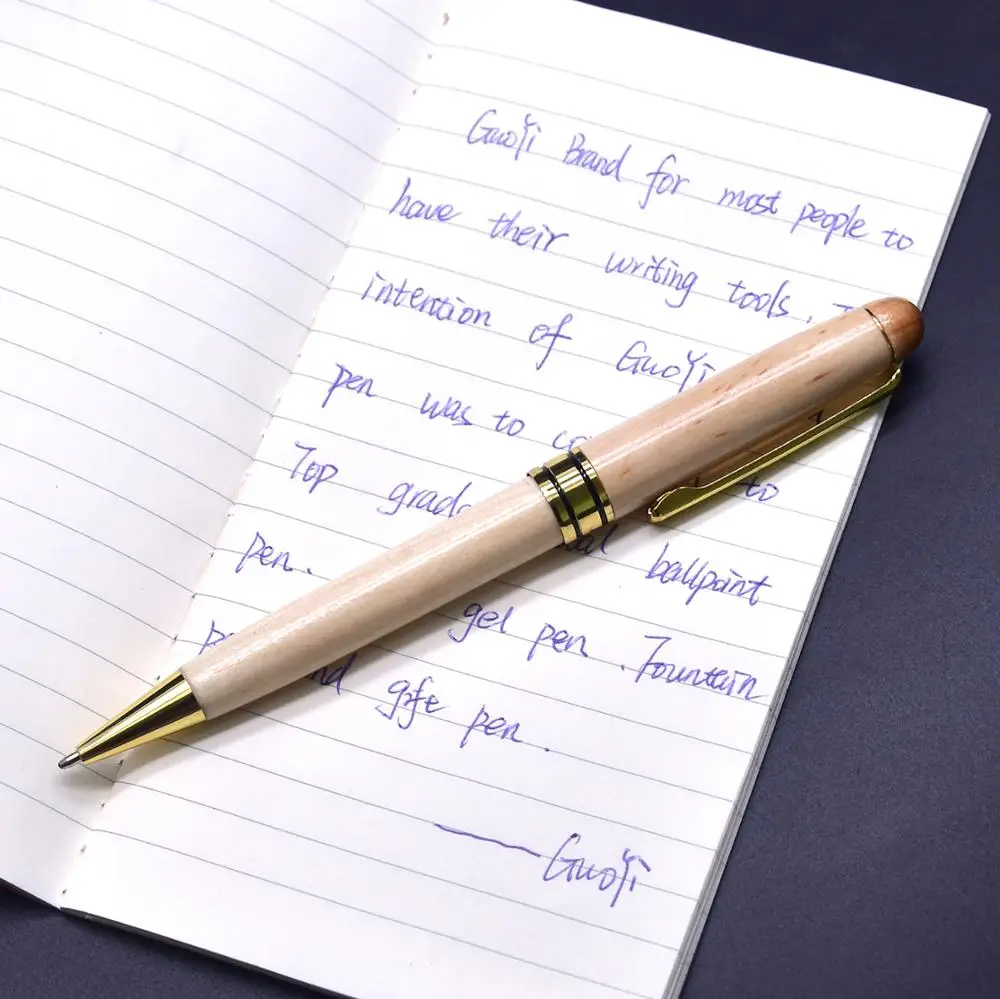 GuoYi Brand for most people to
have their writing tools.
intention of GuoYi
pen was to
Top to
pen. ballpoint
gel pen. Fountain
gift pen.
— GuoYi